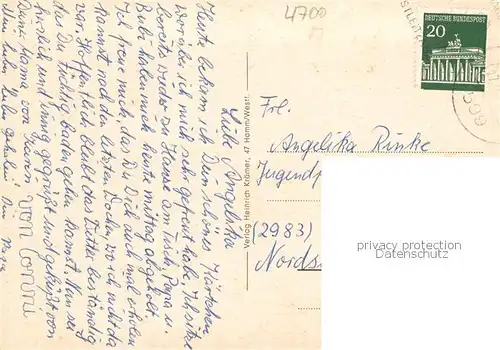 4700
Liebe Angelika
Heute bekam ich Dein schönes Kärtchen
worüber ich mich sehr gefreut habe. Ich sitze
bereits wieder zu Hause am Tisch. Papa u.
Bubi haben mich heute mittag abgeholt.
Ich freue mich, das Du Dich auch mal erholen
kannst nach den letzten Wochen wo ich nicht da
war. Hoffentlich bleibt das Wetter beständig
das Du tüchtig baden gehen kannst. Nun sei
herzlich und innig gegrüßt und geküßt von
Deine Mama von
vom Conni
Verlag Heinrich Krämer, 47 Hamm/Westf.
DEUTSCHE BUNDESPOST
20
Frl.
Angelika Rinke
Jugend
(2983)
Nords
privacy protection
VDMedien24.de